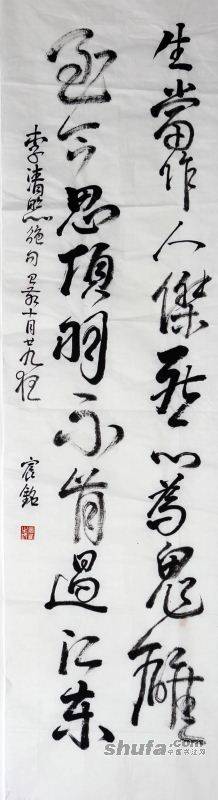 生當作人傑死亦為鬼雄
至今思項羽不肯過江东
李清照絶句 十月
宸銘
shufa.com
中国书法网